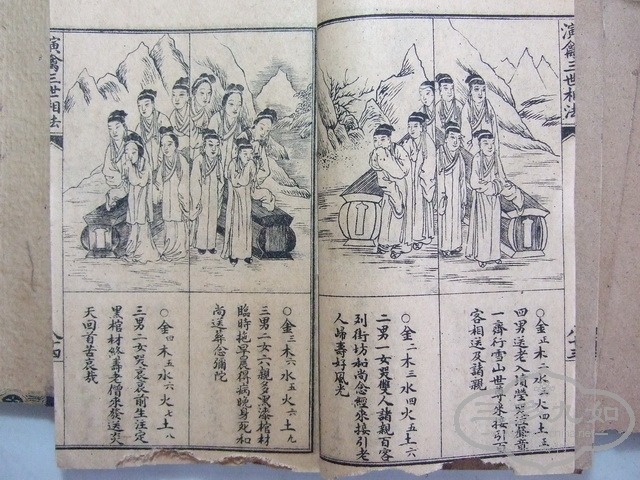 演禽三世相法
八十三
○金正木二水三火四土五
四男送老入墳塋
一齋行雪山世尊來接引百
客相送及諸親
○金二木三水四火五土六
二男一女哭雙人諸親百客
到街坊和尚念經來接引老
人歸壽好風光
○金三木六水五火六土九
三男二女六親多黑漆棺材
臨時抱早晨得病晚身死和
尚送葬念彌陀
○金四木五水六火七土八
三男二女哭哀哀前生注定
黑棺材終壽老僧來發送炎
天回首苦哀哉
演禽三世相法
八十四